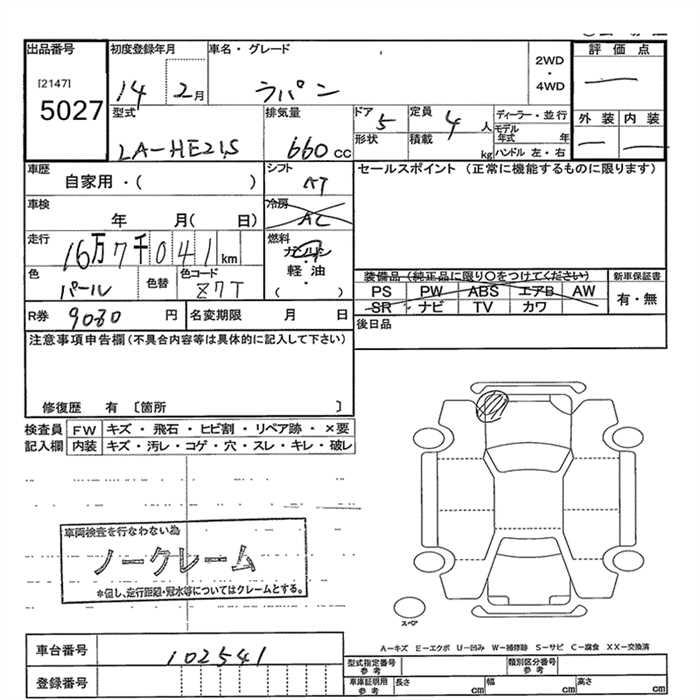 出品番号 初度登録年月 車名・グレード 2WD・4WD 評価点
[2147]
5027 14 2月 ラパン —
型式 排気量 ドア 5 定員 4人 ディーラー・並行 外装 内装
形状 積載 kg モデル年式 年 — —
LA-HE21S 660cc ハンドル 左・右
車歴 シフト セールスポイント (正常に機能するものに限ります)
自家用・( ) AT
車検 冷房
年 月( 日) AC
走行 燃料
16万7千041km ガソリン・
色 色替 色コード 軽油・
パール Z7T ( )
装備品 (純正品に限り○をつけてください) 新車保証書
PS PW ABS エアB AW 有・無
SR ナビ TV カワ
R券 9080円 名変期限 月 日 後日品
注意事項申告欄(不具合内容等は具体的に記入して下さい)
修復歴 有 〔箇所 〕
検査員 FW キズ・飛石・ヒビ割・リペア跡・×要
記入欄 内装 キズ・汚レ・コゲ・穴・スレ・キレ・破レ
車両検査を行なわない為
ノークレーム
*但し、走行距離・冠水等についてはクレームとする。
スペア
A―キズ E―エクボ U―凹み W―補修跡 S―サビ C―腐食 XX―交換済
車台番号 102541 型式指定番号 参考 類別区分番号 参考
登録番号 車庫証明用 参考 長さ cm 幅 cm 高さ cm